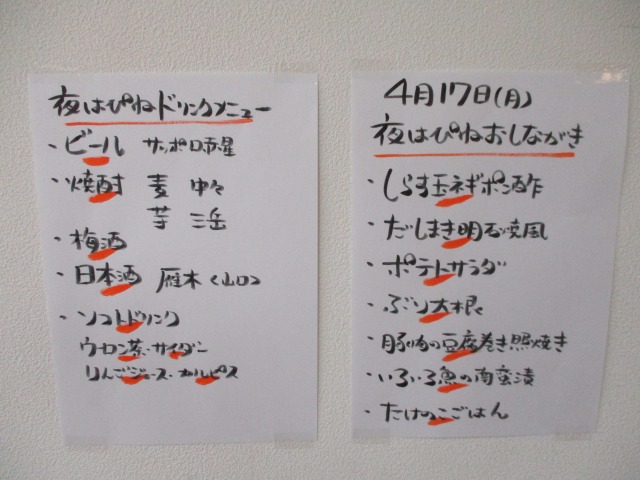 夜はぴねドリンクメニュー
・ビール サッポロ赤星
・焼酎 麦 中々
芋 三岳
・梅酒
・日本酒 雁木<山口>
・ソフトドリンク
ウーロン茶・サイダー
りんごジュース・カルピス
4月17日(月)
夜はぴねおしながき
・しらす玉ネギポン酢
・だしまき明石焼風
・ポテトサラダ
・ぶり大根
・豚肉の豆腐巻き照焼き
・いろいろ魚の南蛮漬
・たけのこごはん